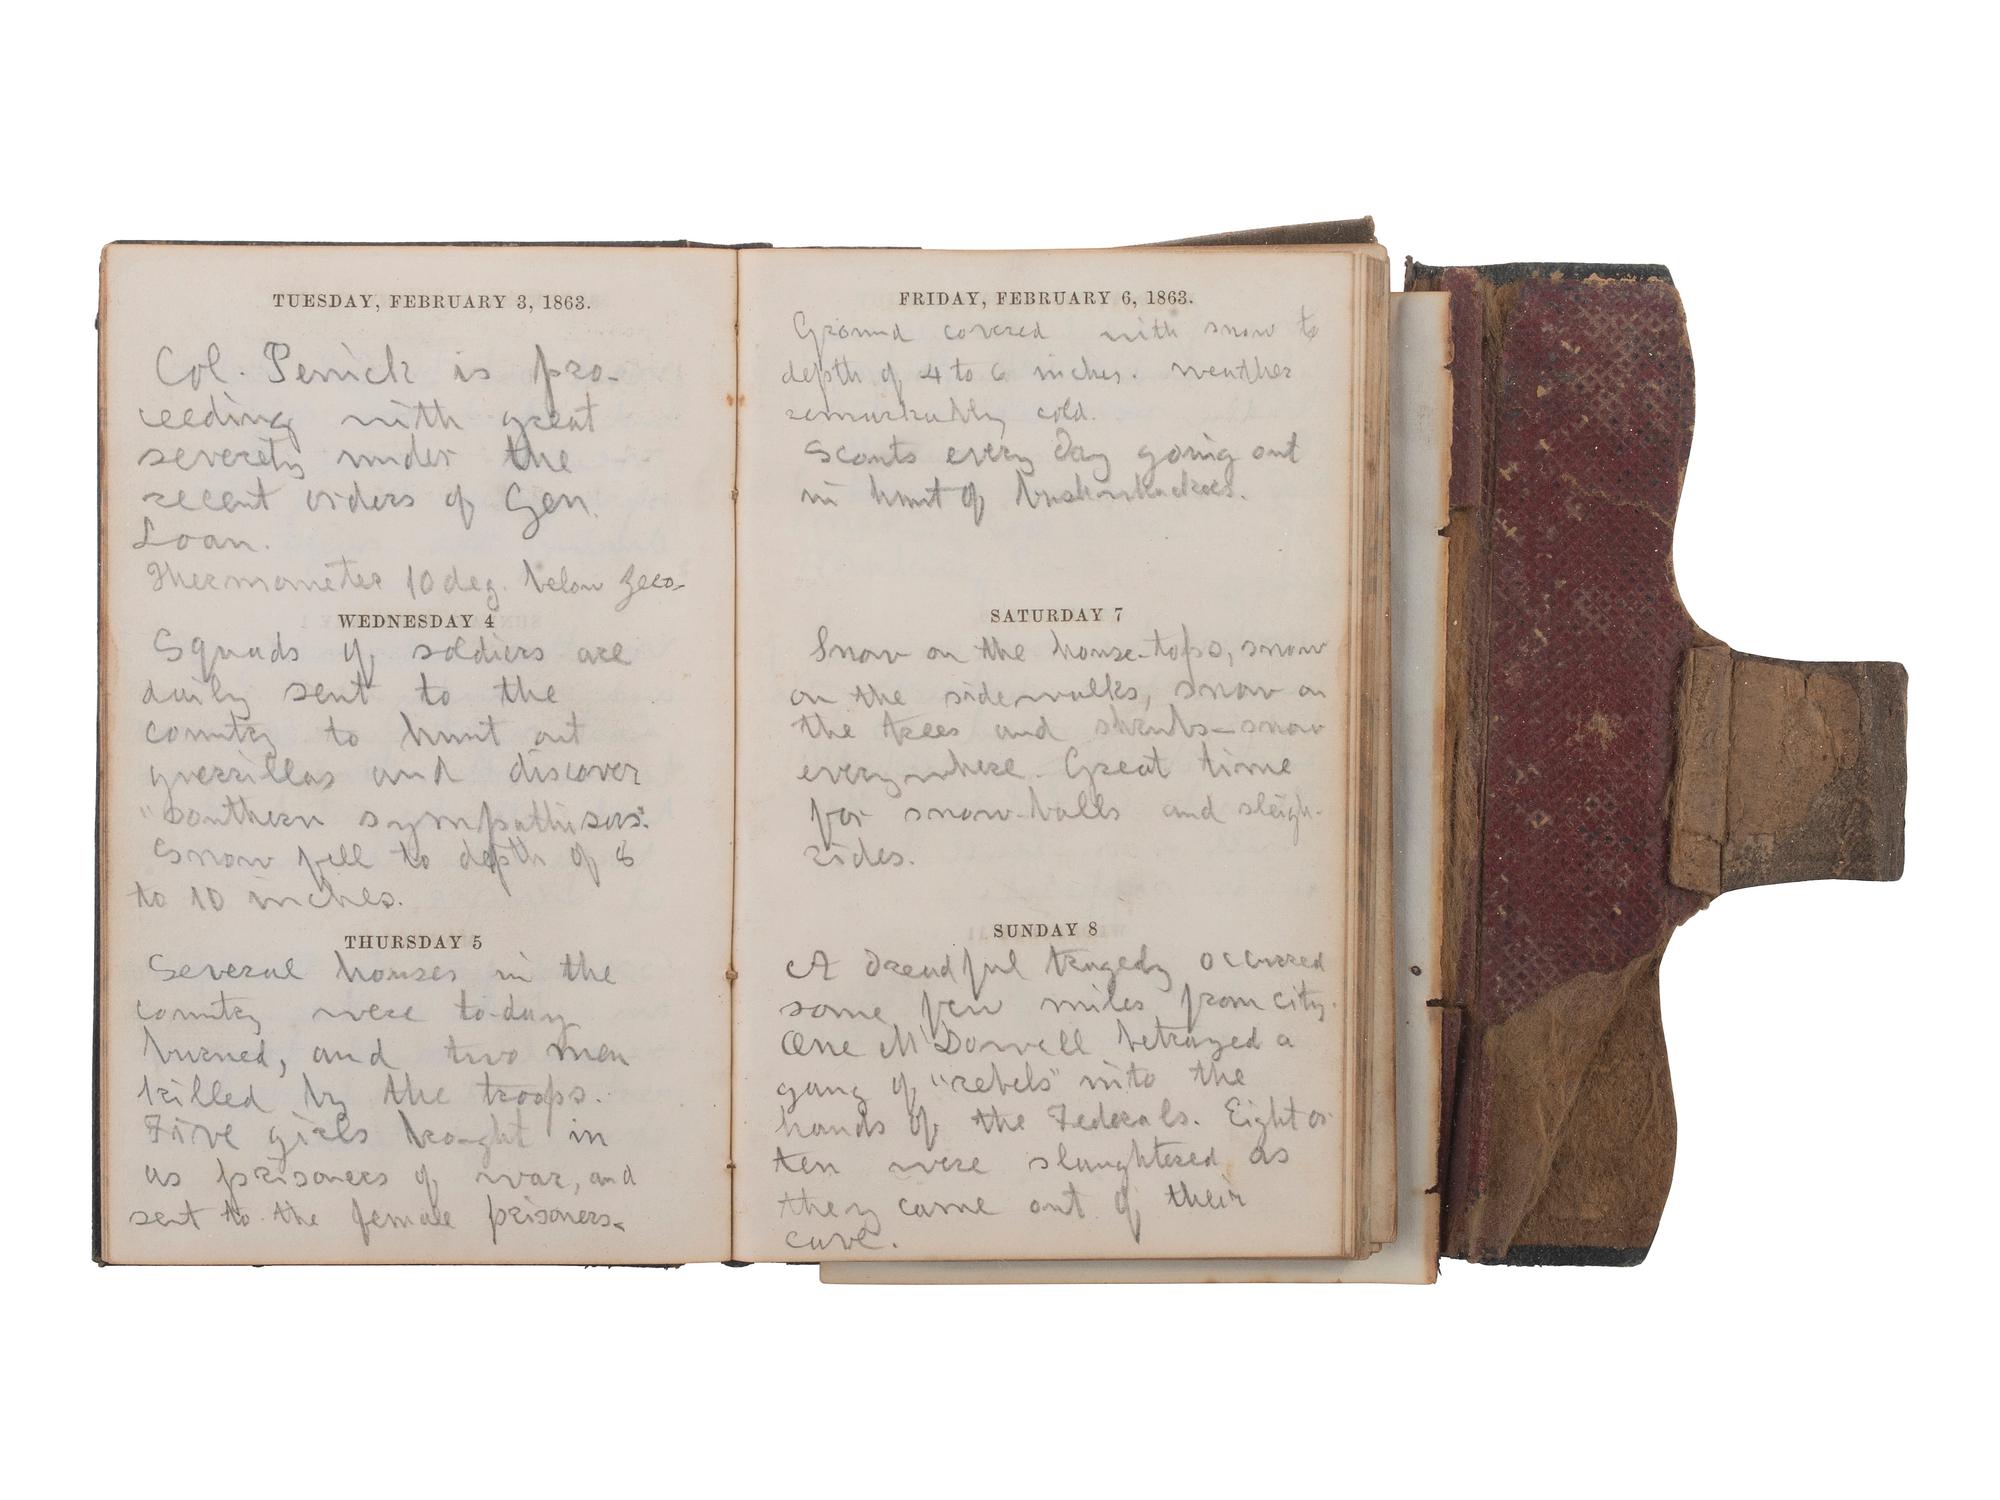 TUESDAY, FEBRUARY 3, 1863.
Col. Penick is pro-
ceeding with great
severety under the
recent orders of Gen.
Loan.
Thermometer 10 deg. below Zero-
WEDNESDAY 4
Squads of soldiers are
daily sent to the
country to hunt out
guerrillas and discover
"Southern sympathisers".
Snow fell to depth of 8
to 10 inches.
THURSDAY 5
Several houses in the
country were to-day
burned, and two men
killed by the troops.
Five girls brought in
as prisoners of war, and
sent to the female prisoners-
FRIDAY, FEBRUARY 6, 1863.
Ground covered with snow to
depth of 4 to 6 inches. weather
remarkably cold.
Scouts every day going out
in hunt of bushwhackers.
SATURDAY 7
Snow on the house-tops, snow
on the sidewalks, snow on
the trees and shrubs—snow
everywhere. Great time
for snow-balls and sleigh-
rides.
SUNDAY 8
A dreadful tragedy occurred
some few miles from city.
One McDowell betrayed a
gang of "rebels" into the
hands of the Federals. Eight or
ten were slaughtered as
they came out of their
cave.